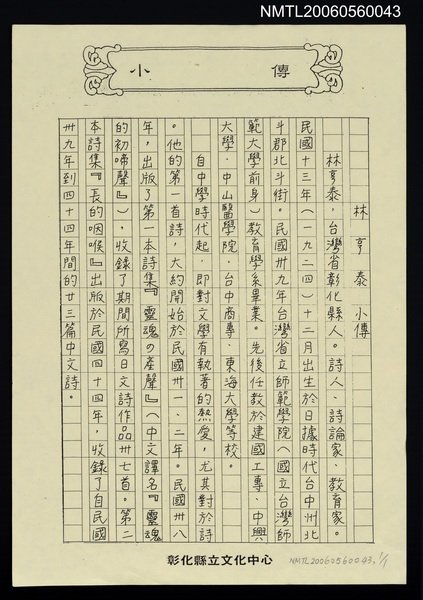 NMTL20060560043
小傳
林亨泰 小傳
林亨泰,台灣省彰化縣人。詩人、詩論家、教育家。
民國十三年(一九二四)十二月出生於日據時代台中州北
斗郡北斗街。民國卅九年台灣省立師範學院(國立台灣師
範大學前身)教育學系畢業。先後任教於建國工專、中興
大學、中山醫學院、台中商專、東海大學等校。
自中學時代起,即對文學有執著的熱愛,尤其對於詩
。他的第一首詩,大約開始於民國卅一、二年。民國卅八
年,出版了第一本詩集『靈魂の產聲』(中文譯名『靈魂
的初啼聲』),收錄了期間所寫日文詩作品卅七首。第二
本詩集『長的咽喉』出版於民國四十四年,收錄了自民國
卅九年到四十四年間的廿三篇中文詩。
彰化縣立文化中心
NMTL20060560043,1/1